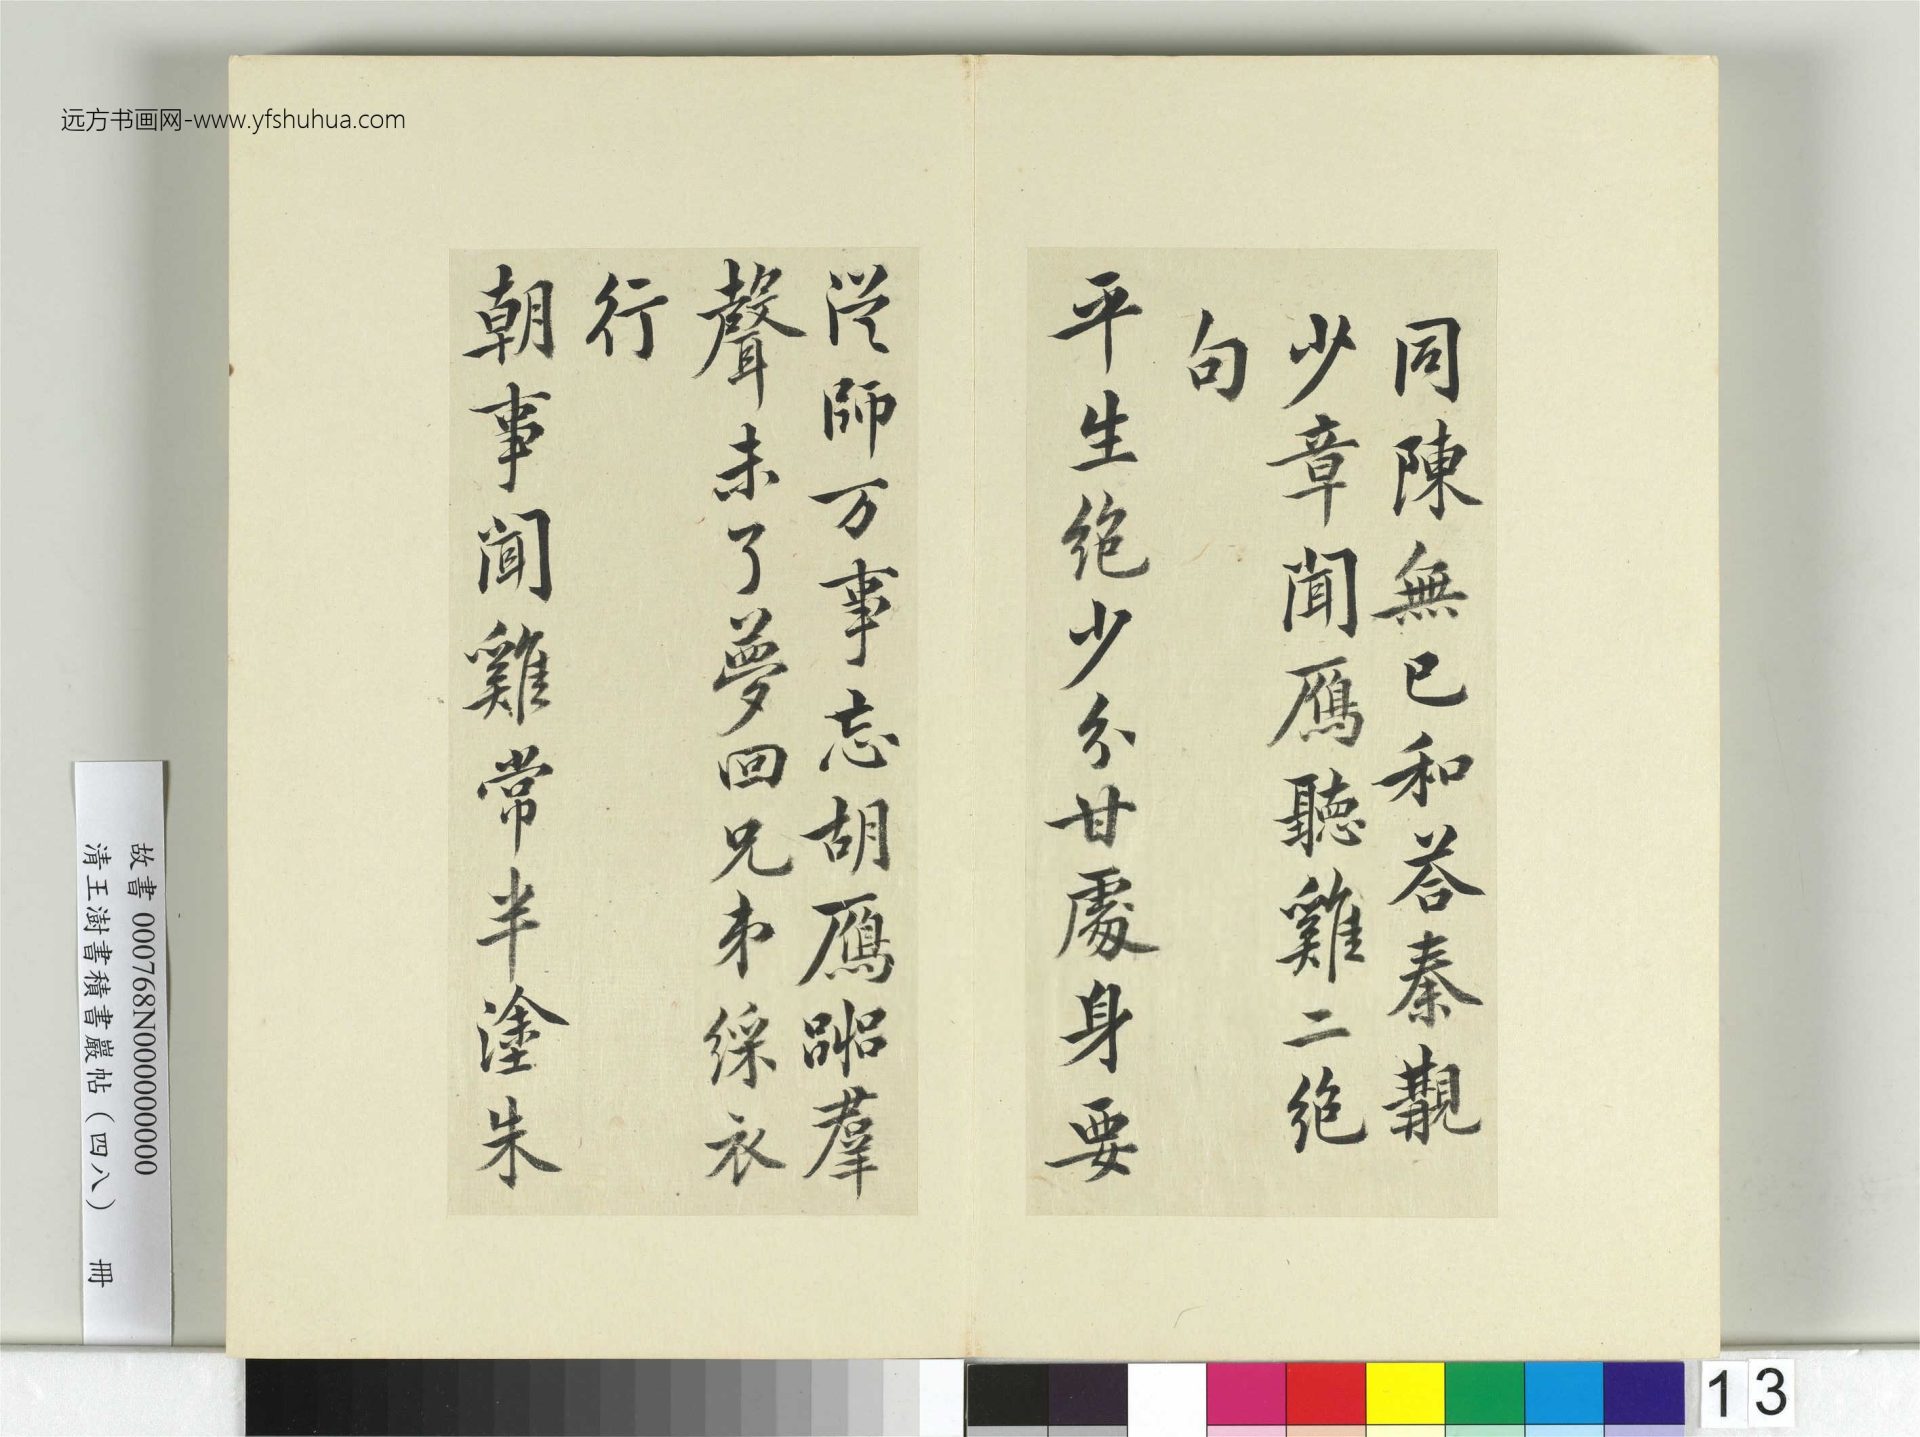 远方书画网-www.yfshuhua.com
同陳無已和荅秦觀
少章聞鴈聽雞二绝
句
平生绝少分甘處身要
從師万事忘胡鴈號羣
聲未了夢回兄弟綵衣
行
朝事聞雞常半塗朱
故書 000768N000000000
清王澍書積書巖帖(四八) 冊
13